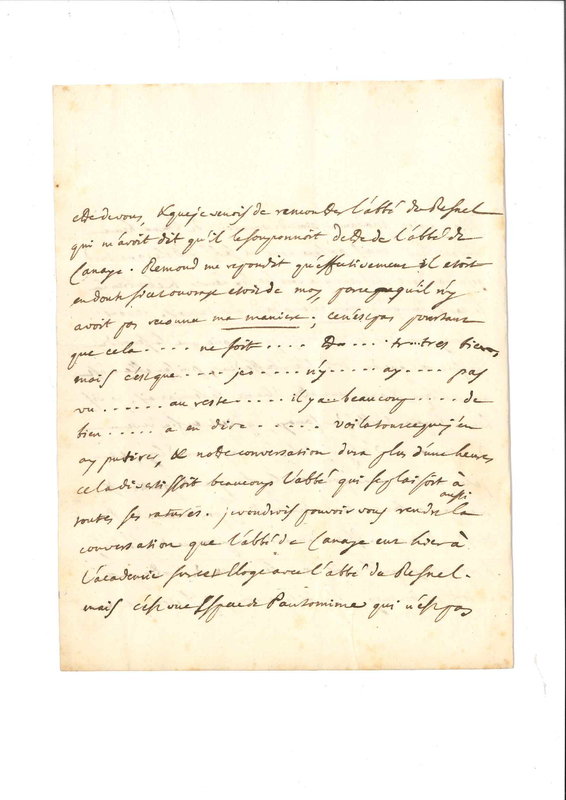 etre de vous, & que je venois de rencontrer l'abbé du Resnel
qui m'avoit dit qu'il le soupçonnoit d'etre de l'abbé de
Canaye. Remond me repondit qu'effectivement il etoit
en doute si cet ouvrage etoit de moy, parcequ'il n'y
avoit pas reconnu ma maniere; ce n'est pas pourtant
que cela .... ne soit .... tr.. tres bien
mais c'est que .... je .... n'y .... ay .... pas
vu ...... au reste .... il y a beaucoup .... de
bien ..... a en dire ...... voila tout ce que j'en
ay pu tirer, & notre conversation dura plus d'une heure
cela divertissoit beaucoup l'abbé qui se plaisoit à
toutes ses ratures. je voudrois pouvoir vous rendre aussi la
conversation que l'abbé de Canaye eut hier à
l'academie sur cet Eloge avec l'abbé du Resnel.
mais c'est une Espece de Pantomime qui n'est pas